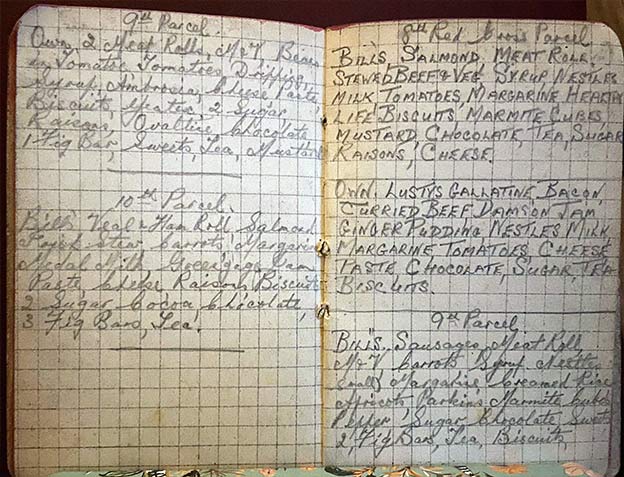 9th Parcel.
Own 2 Meat Rolls, M&V Beans
in Tomatoe Tomatoes, Dripping,
Syrup, Ambrosia, Cheese Paste
Biscuits, 2 Sugar,
Raisons, Ovaltine, Chocolate
1 Fig Bar, Sweets, Tea, Mustard
10th Parcel.
Bill's Veal & Ham Roll Salmond
stew Carrots, Margarine
Milk Greengage Jam
Paste Cheese Raisons, Biscuits
2 Sugar Cocoa, Chocolate,
3 Fig Bars, Tea.
8th Red Cross Parcel
BILLS, SALMOND, MEAT ROLL
STEWED BEEF & VEG SYRUP NESTLES
MILK TOMATOES, MARGARINE HEALTHY
LIFE BISCUITS, MARMITE CUBES,
MUSTARD, CHOCOLATE, TEA, SUGAR
RAISONS, CHEESE.
OWN. LUSTYS GALLATINE, BACON,
CURRIED BEEF DAMSON JAM
GINGER PUDDING NESTLES MILK
MARGARINE, TOMATOES, CHEESE
PASTE, CHOCOLATE, SUGAR, TEA
BISCUITS.
9th PARCEL.
BILL'S. Sausages, Meat Roll
M&V, Carrots Syrup Nestles
small) Margarine Creamed Rice
Apricots Parkins Marmite Cubes
Pepper Sugar Chocolate Sweets
2, Fig Bars, Tea, Biscuits,